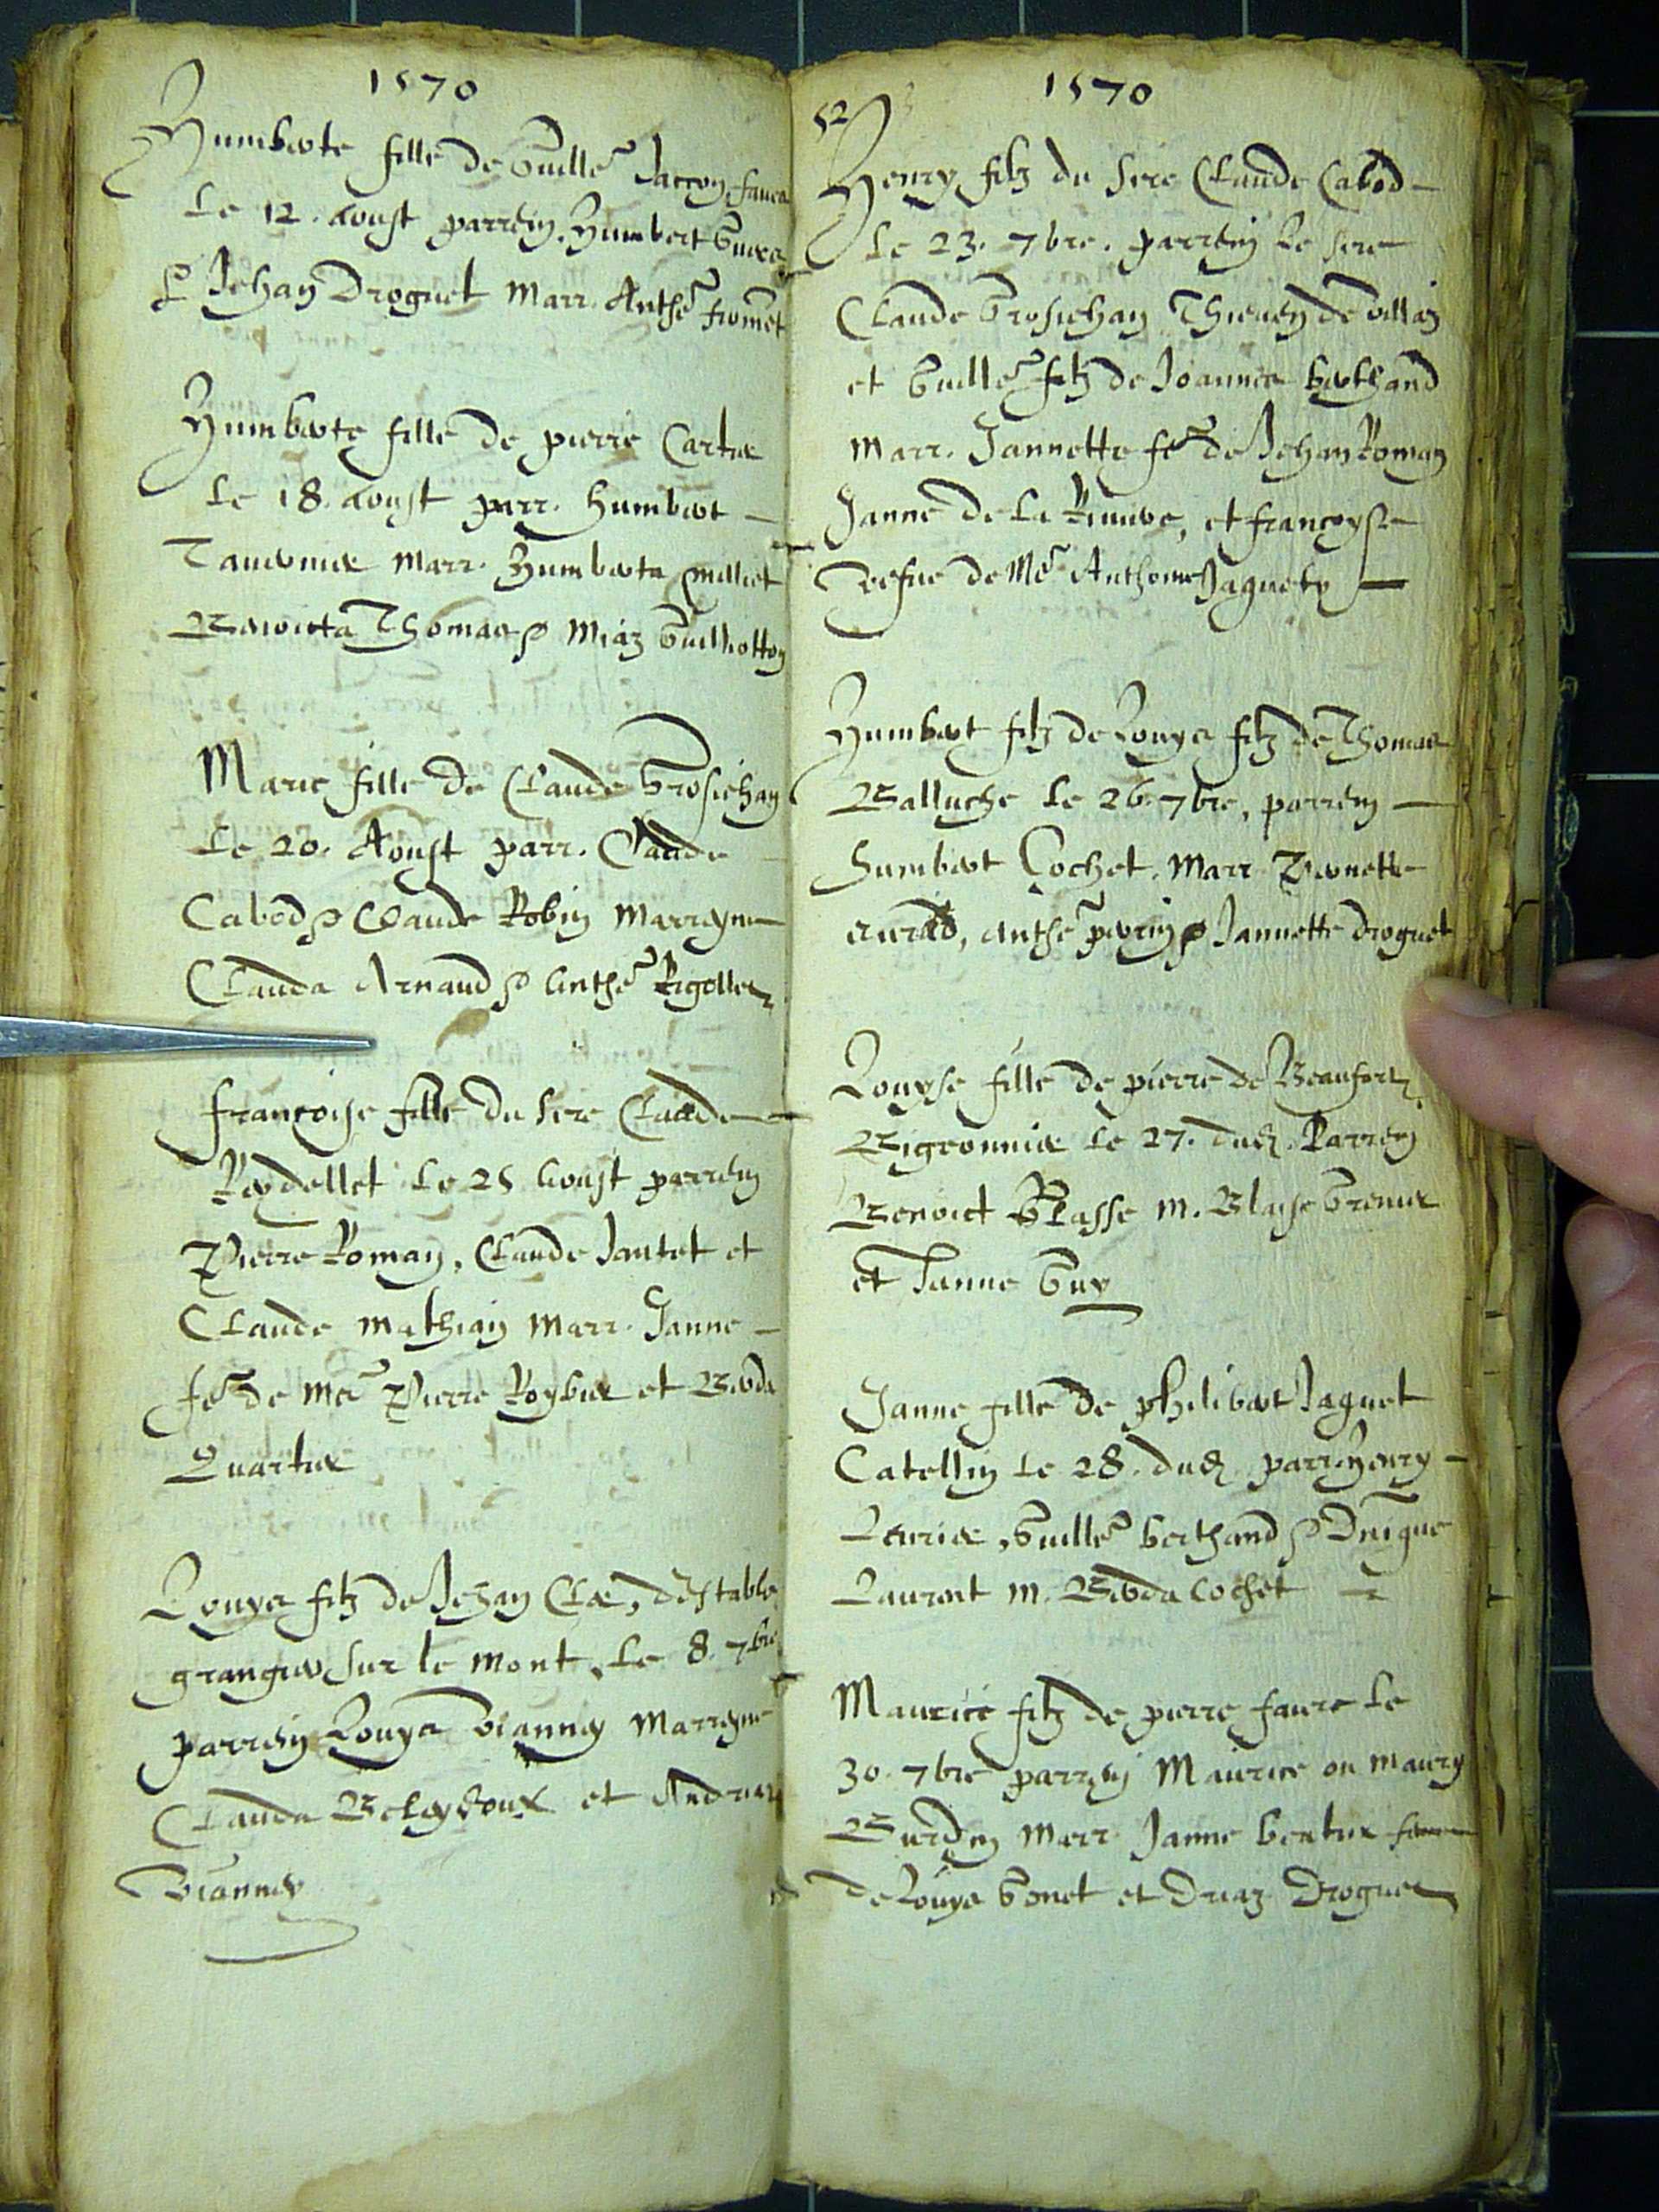 1570
Humberte fille de Guille Jacron
Le 12. Aoust parrein. Humbert
Jehan Droguet Marr. Anthe
Humberte fille de pierre Cartier
Le 18. aoust parr. humbert
Marr. Humberta milliet
Benoicta Thomas & Miaz Guilliotton
Marie fille de Claude Grosiehan
Le 20. Aoust parr. Claude
Cabod & Claude Robin Marreyne
Clauda Arnaud & Anthe Rigollet
francoise fille du sire Claude
Reydellet Le 25 Aoust parrein
Pierre Roman, Claude Jantet et
Claude mathian Marr. Janne
fe de Me Pierre et
Quartier
Louys filz de Jehan
granger sur le mont, Le 8. 7bre
parrein Louys vianney Marreyne
Clauda Beleydoux et
vianney
1570
52
Henry filz du sire Claude Cabod
Le 23. 7bre. parrein Le sire
Claude Grosiehan
et Guille filz de Joannes berthand
Marr. Jannette fe de Jehan Roman
Janne de La et francoyse
de Me Anthoine Jaguety
Humbert filz de Louys filz de Thomas
Balluche Le 26. 7bre, parrein
humbert Cochet. Marr. Pernette
anthe perrin & Jannette droguet
Louyse fille de pierre de Beaufort
Le 27. dud. Parrein
Benoict Blasse m. Blaise Grenier
et Janne Guy
Janne fille de philibert Jaguet
Catellin Le 28. dud. parr. henry
Guille berthand &
Laurent m. cochet
Maurice filz de pierre favre Le
30. 7bre parrein Maurice ou maury
Burdin Marr. Janne
de Louys Gonet et Driaz Droguet